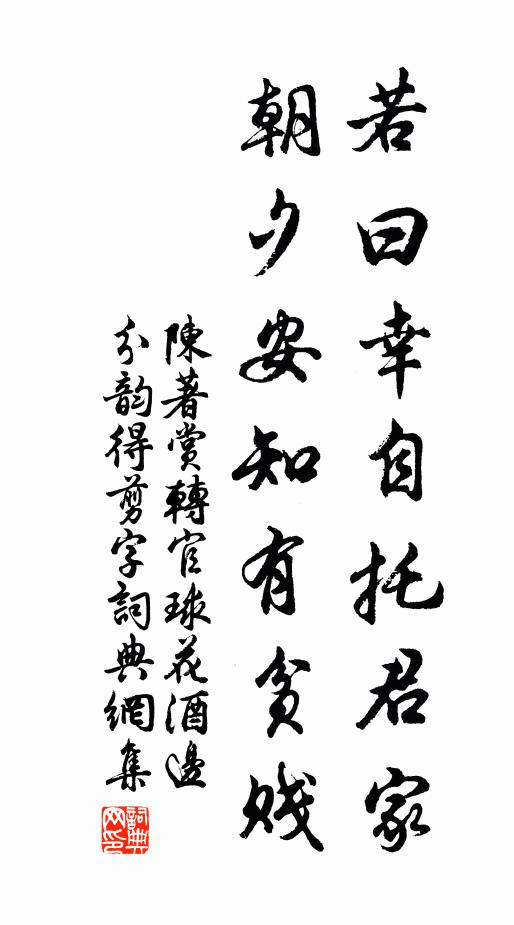 若曰幸自托君家
朝夕安知有貧賤
陳著賞轉官球花酒邊
分韵得剪字詞典網集
詞典
网印